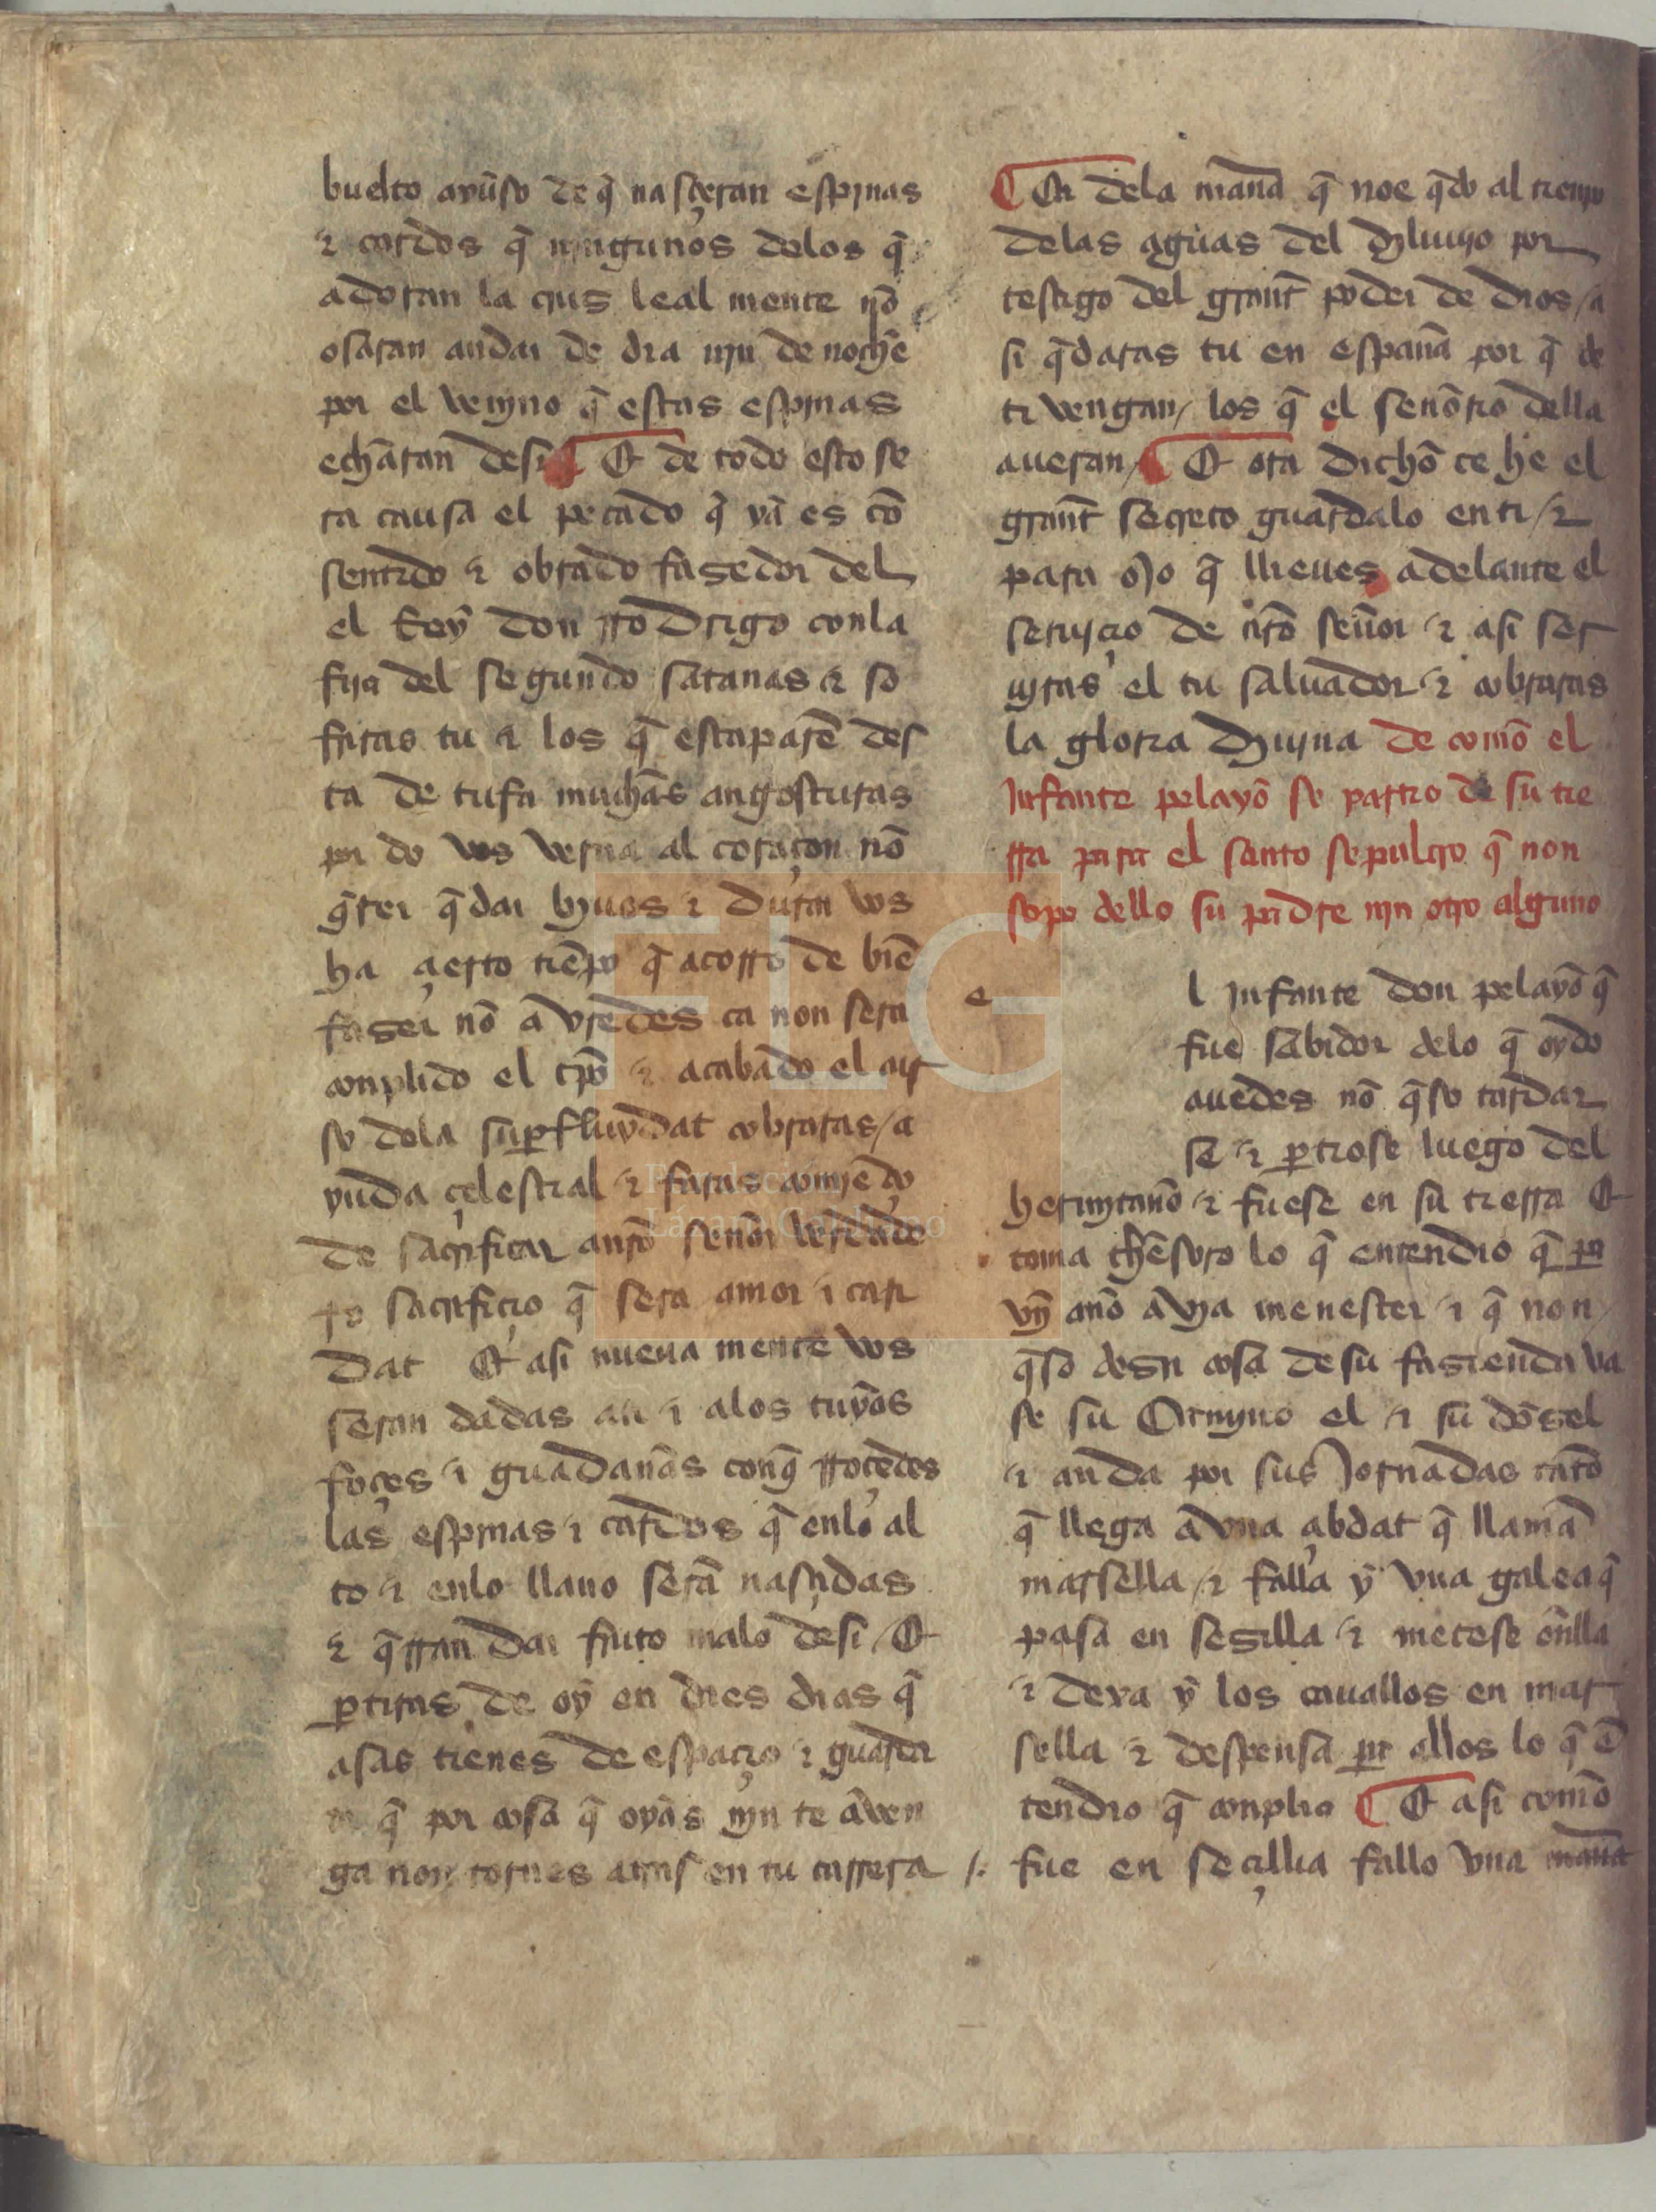 buelto ayuso de q̃ nasçeran espinas
⁊ cardos q̃ ningunos delos q̃
adoran la crus leal mente nõ
osaran andar de dia nin de noche
por el venjno q̃ estas espinas
echaran desi ¶ Et de todo esto se
ra causa el pecado q̃ ya es cõ
sentido ⁊ obrado fasedor del
el Rey don rrodrigo conla
fija del segundo satanas ⁊ so
friras tu ⁊ los q̃ escaparẽ des
ta de tufa muchas angosturas
por do vos verna al coraçon nõ
q̃rer q̃dar biuos ⁊ durar vos
ha çierto tiẽpo q̃ acorro de biẽ
faser nõ avredes ca non sera
conplido el tp̃o ⁊ acabado el cur
so dela sup̱fluydat cobraras / a
yuda çelestial ⁊ faras comjẽdo
de sacrificar anr̃o señor verdade
ro sacrifiçio q̃ sera amor ⁊ cari
dat Et asi nueua mente vos
seran dadas ati ⁊ alos tuyos
foçes ⁊ guadañas conq̃ rroçedes
las espinas ⁊ cardos q̃ enlo al
to ⁊ enlo llano serã nasçidas
⁊ q̃rran dar fruto malo desi / Et
p̱tiras de oy en dies dias q̃
asas tienes de espaçio ⁊ guarda
te q̃ por cosa q̃ oyas njn te aven
ga non tornes atras en tu carrera /.
¶ Ca dela manã q̃ noe q̃do al tienpo
delas aguas del diluujo por
testigo del grant poder de dios / a
si q̃daras tu en españa por q̃ de
ti vengan / los q̃ el señorio della
aueran / ¶ Et ora dicho te he el
grant secreto guardalo enti / ⁊
para ojo q̃ llieues adelante el
seruiçio de nr̃o señor ⁊ asi ser
ujras el tu saluador ⁊ cobraras
la gloria diujna de como el
Infante pelayo se partio de su tie
rra para el santo sepulcro q̃ non
sopo dello su padre njn otro alguno
e
l Infante don pelayo q̃
fue sabidor delo q̃ oydo
auedes nõ q̃so tardar
se ⁊ p̱tiose luego del
hermjtaño ⁊ fuese en su tierra Et
toma thesoro lo q̃ entendio q̃ pa
vn año avia menester ⁊ q̃ non
q̃so desir cosa de su fasienda va
se su Camjno el ⁊ su dõsel
⁊ anda por sus Jornadas tãto
q̃ llega a vna çibdat q̃ llamã
marsella / ⁊ falla y vna galea q̃
pasa en seçilla ⁊ metese enlla
⁊ dexa y los cauallos en mar
sella ⁊ despensa pa ellos lo q̃ ẽ
tendio q̃ conplia ¶ Et asi como
fue en seçillia fallo vna manã